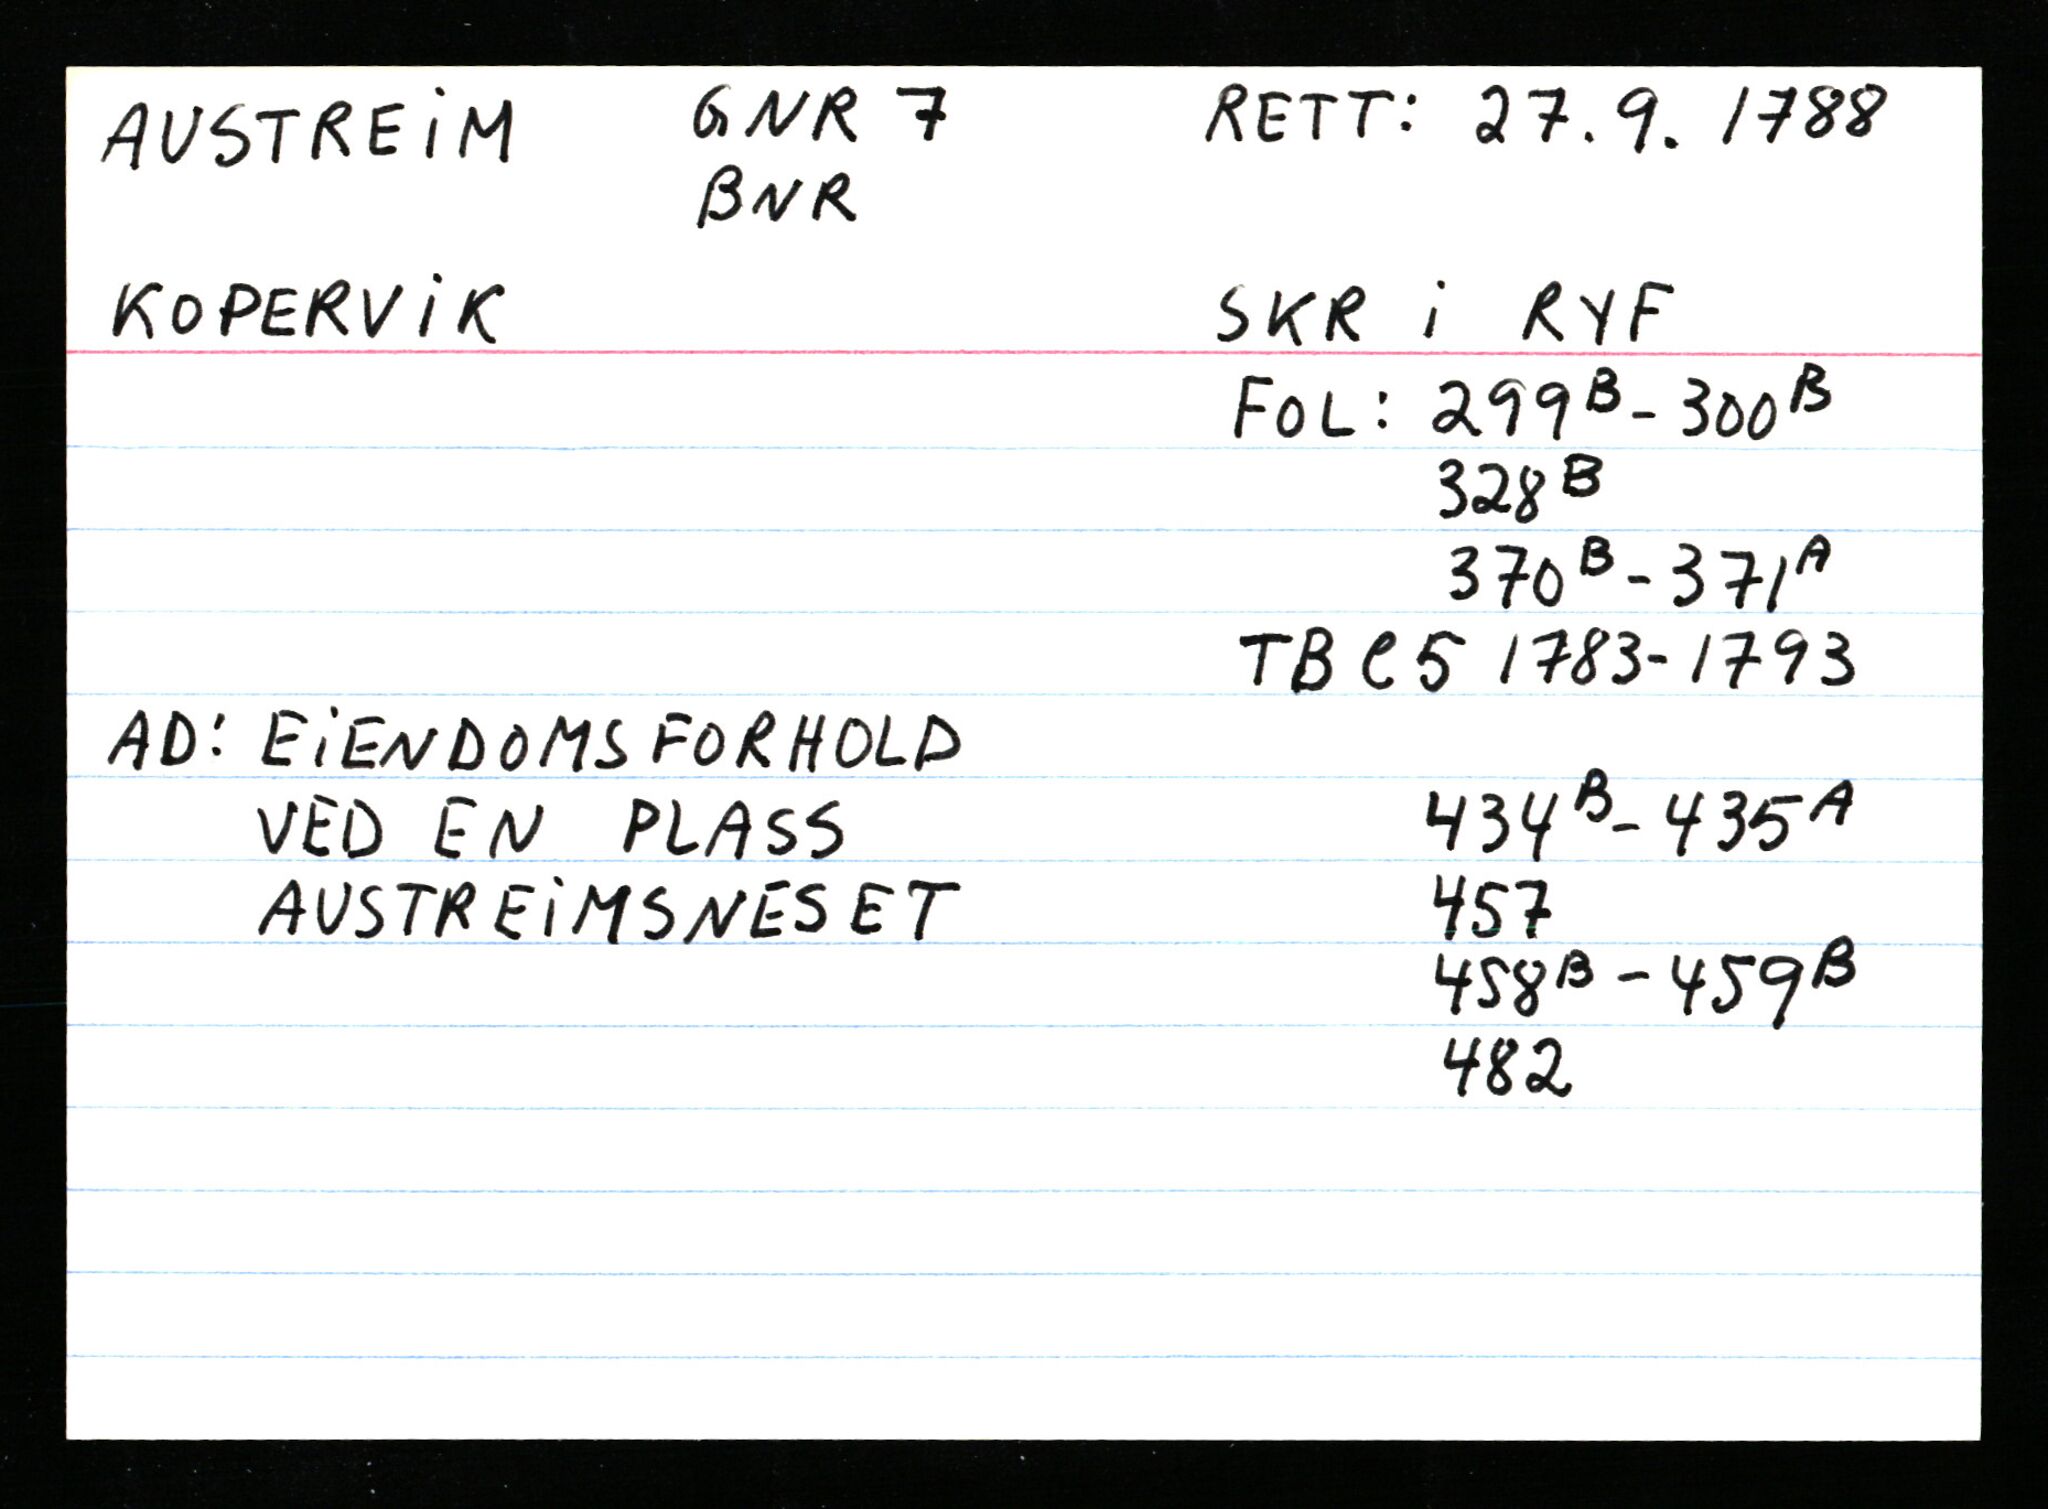 AUSTREiM GNR 7 RETT: 27.9. 1788
BNR
KOPERViK SKR i RYF
FOL: 299B - 300B
328B
370B - 371A
TB C5 1783-1793
AD: EiENDOMSFORHOLD
VED EN PLASS 434B - 435A
AUSTREiMSNESET 457
458B - 459B
482